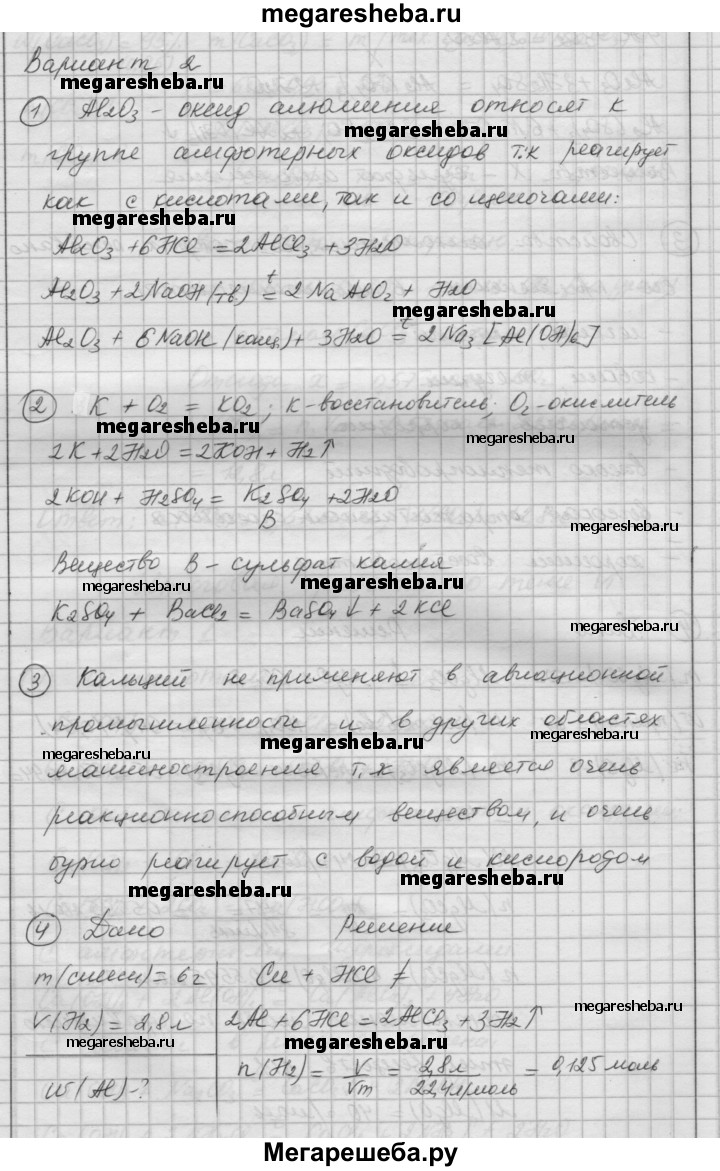 megaresheba.ru
Вариант 2
megaresheba.ru
① Al2O3 - оксид алюминия относят к
megaresheba.ru
группе амфотерных оксидов т.к реагирует
как с кислотами, так и со щелочами:
megaresheba.ru
Al2O3 + 6HCl = 2AlCl3 + 3H2O
Al2O3 + 2NaOH(тв) t= 2NaAlO2 + H2O
megaresheba.ru
Al2O3 + 6NaOH(конц) + 3H2O t= 2Na3[Al(OH)6]
② K + O2 = KO2; K-восстановитель; O2-окислитель
megaresheba.ru
megaresheba.ru
2K + 2H2O = 2KOH + H2↑
2KOH + H2SO4 = K2SO4 + 2H2O
B
megaresheba.ru
Вещество B - сульфат калия
megaresheba.ru
megaresheba.ru
K2SO4 + BaCl2 = BaSO4↓ + 2KCl
megaresheba.ru
③ Кальций не применяют в авиационной
промышленности и в других областях
megaresheba.ru
megaresheba.ru
megaresheba.ru
машиностроения т.к является очень
реакционноспособным веществом, и очень
бурно реагирует с водой и кислородом
megaresheba.ru
megaresheba.ru
④ Дано Решение
m(смеси) = 6г Cu + HCl ≠
megaresheba.ru
V(H2) = 2,8л 2Al + 6HCl = 2AlCl3 + 3H2↑
megaresheba.ru
megaresheba.ru
n(H2) = V/Vm = 2,8л/22,4л/моль = 0,125 моль
w(Al)-?
Мегарешеба.ру